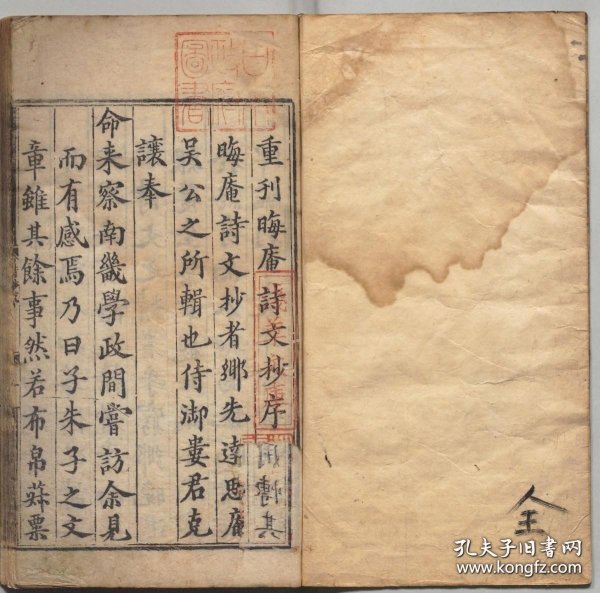 重刊晦庵詩文抄序
晦庵詩文抄者鄉先達思庵
吴公之所輯也侍御婁君克
讓奉
命来察南畿學政間嘗訪余見
而有感焉乃曰子朱子之文
章雖其餘事然若布帛菽粟
全
孔夫子旧书网
www.kongfz.com